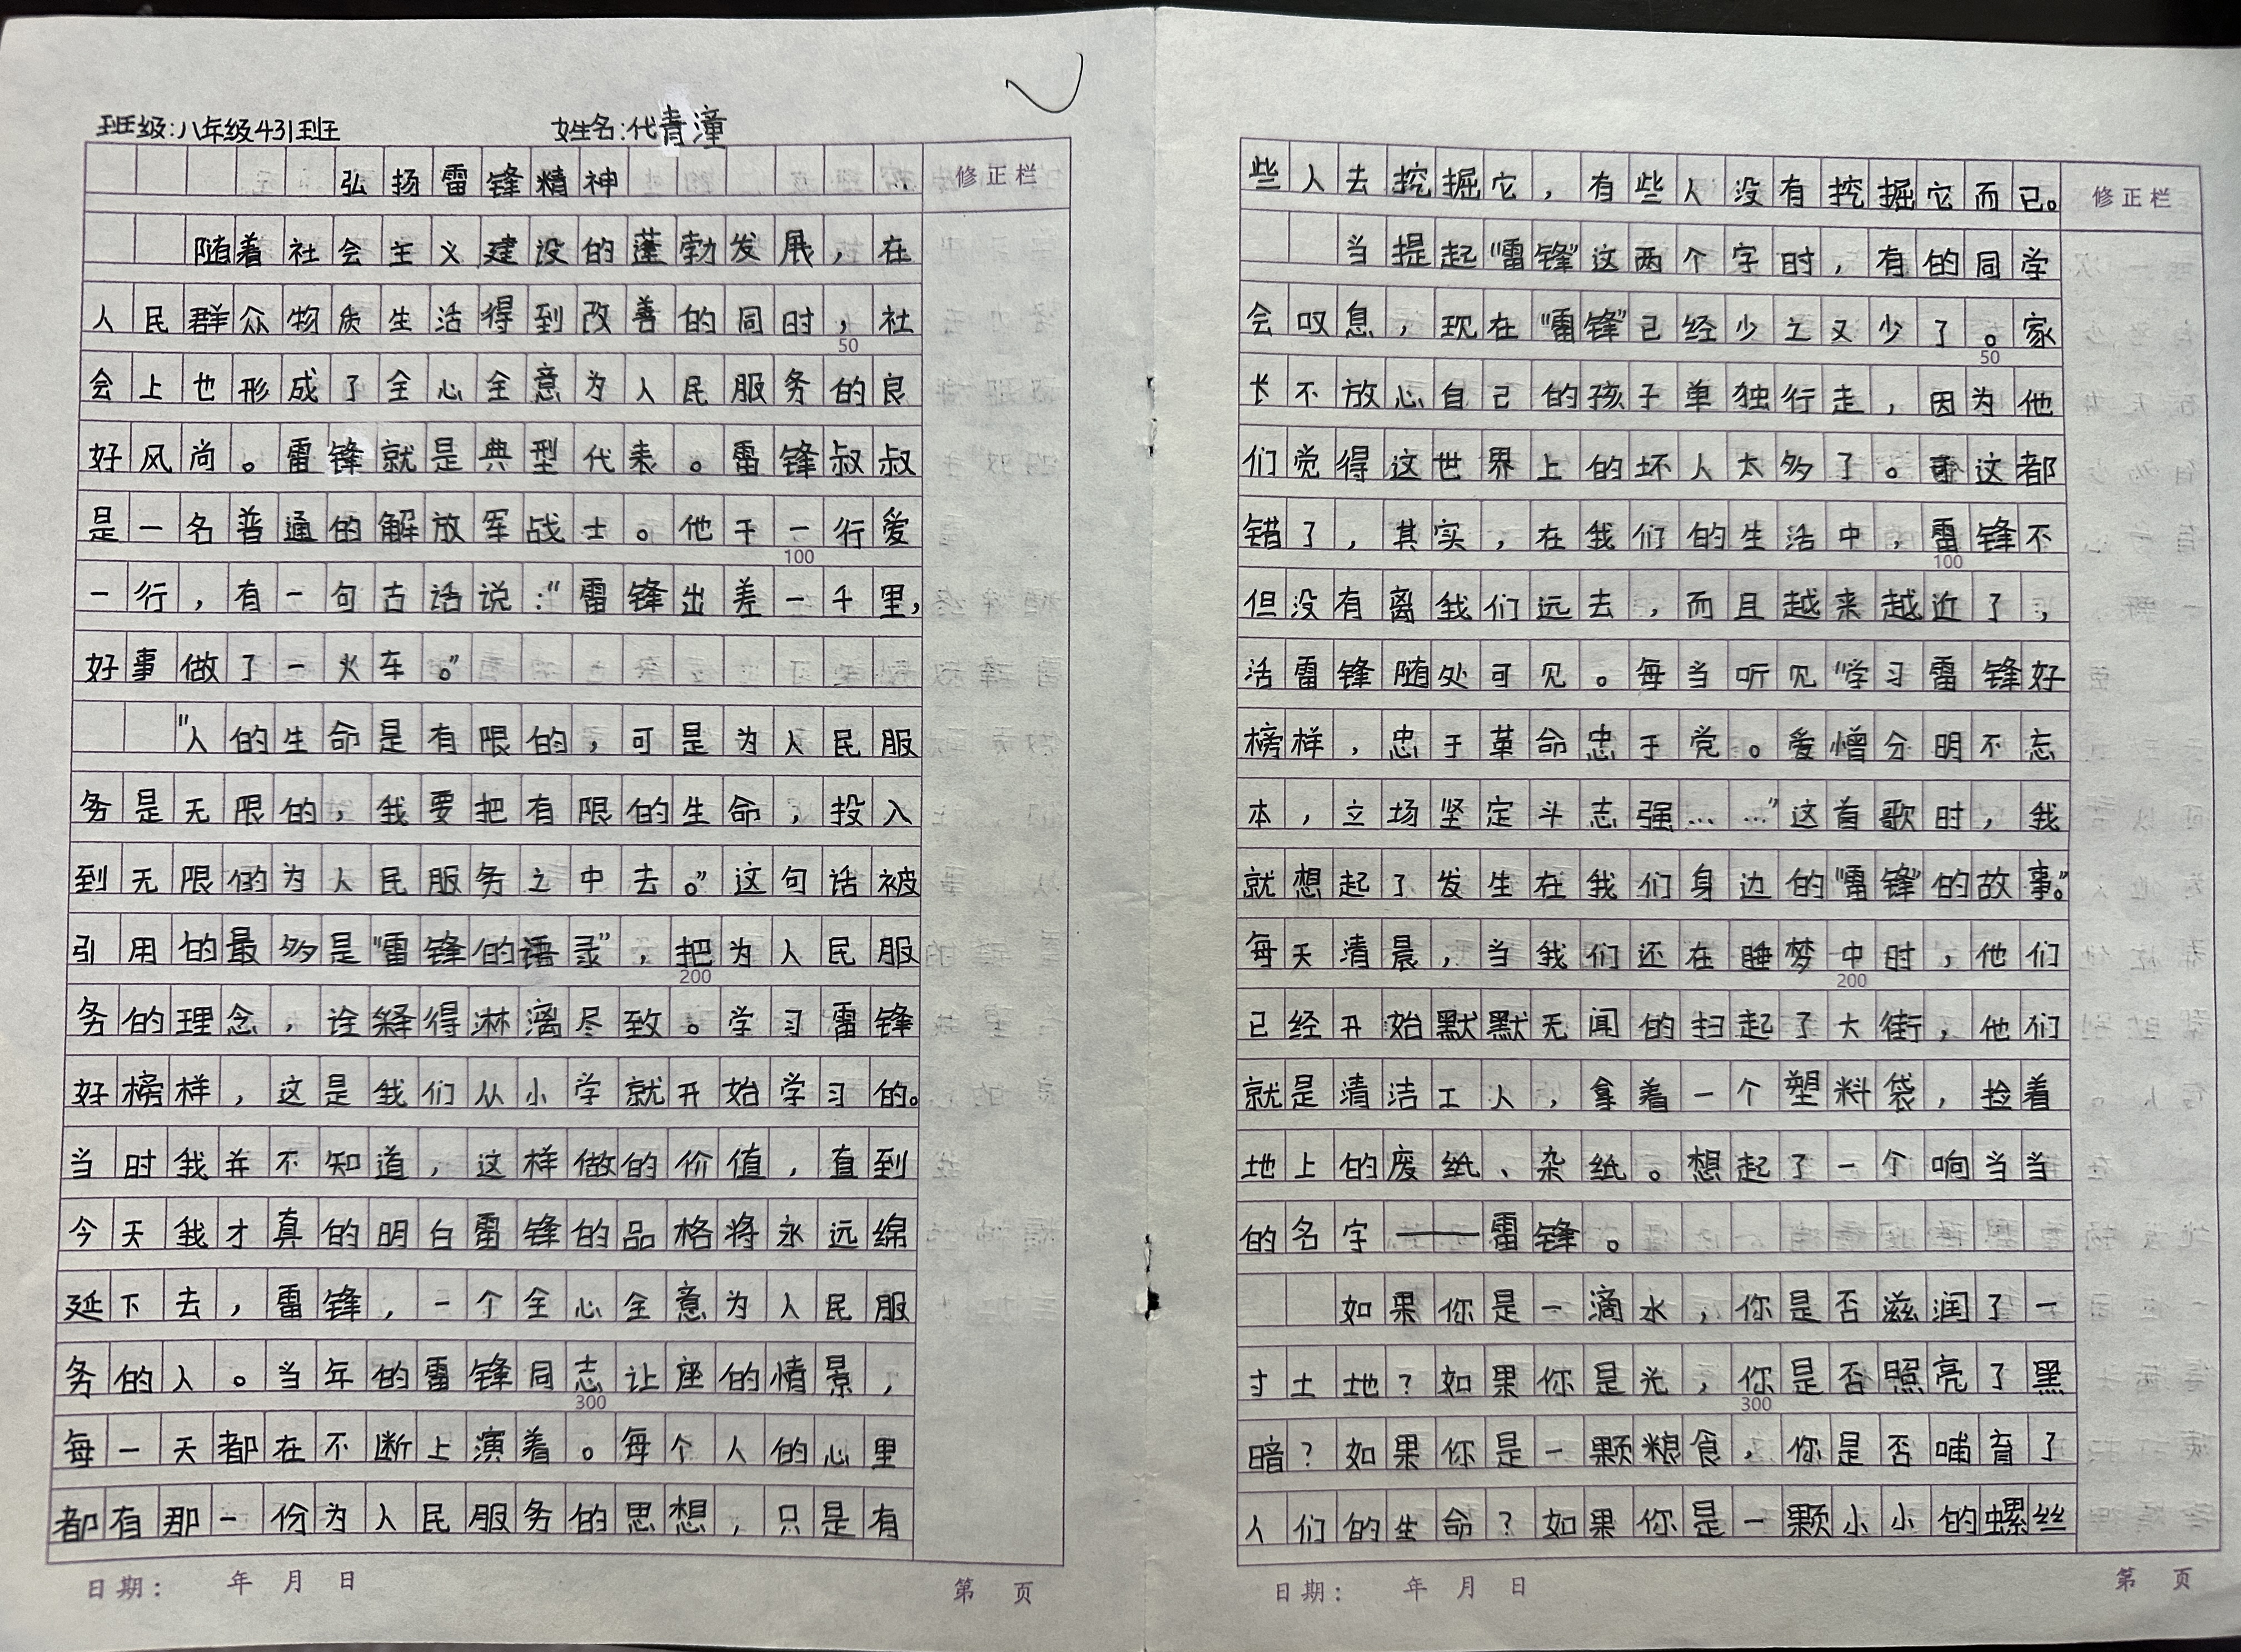 班级:八年级431班 姓名:代青潼
弘扬雷锋精神
修正栏
随着社会主义建设的蓬勃发展，在
人民群众物质生活得到改善的同时，社
50
会上也形成了全心全意为人民服务的良
好风尚。雷锋就是典型代表。雷锋叔叔
是一名普通的解放军战士。他干一行爱
100
一行，有一句古话说:“雷锋出差一千里，
好事做了一火车。”
“人的生命是有限的，可是为人民服
务是无限的，我要把有限的生命，投入
到无限的为人民服务之中去。”这句话被
引用的最多是“雷锋的语录”，把为人民服
200
务的理念，诠释得淋漓尽致。学习雷锋
好榜样，这是我们从小学就开始学习的。
当时我并不知道，这样做的价值，直到
今天我才真的明白雷锋的品格将永远绵
延下去，雷锋，一个全心全意为人民服
务的人。当年的雷锋同志让座的情景，
300
每一天都在不断上演着。每个人的心里
都有那一份为人民服务的思想，只是有
日期: 年 月 日
第 页
些人去挖掘它，有些人没有挖掘它而已。
修正栏
当提起“雷锋”这两个字时，有的同学
会叹息，现在“雷锋”已经少之又少了。家
50
长不放心自己的孩子单独行走，因为他
们觉得这世界上的坏人太多了。这都
错了，其实，在我们的生活中，雷锋不
100
但没有离我们远去，而且越来越近了，
活雷锋随处可见。每当听见“学习雷锋好
榜样，忠于革命忠于党。爱憎分明不忘
本，立场坚定斗志强……”这首歌时，我
就想起了发生在我们身边的“雷锋”的故事。”
每天清晨，当我们还在睡梦中时，他们
200
已经开始默默无闻的扫起了大街，他们
就是清洁工人，拿着一个塑料袋，捡着
地上的废纸、杂纸。想起了一个响当当
的名字——雷锋。
如果你是一滴水，你是否滋润了一
寸土地？如果你是光，你是否照亮了黑
300
暗？如果你是一颗粮食，你是否哺育了
人们的生命？如果你是一颗小小的螺丝
日期: 年 月 日
第 页